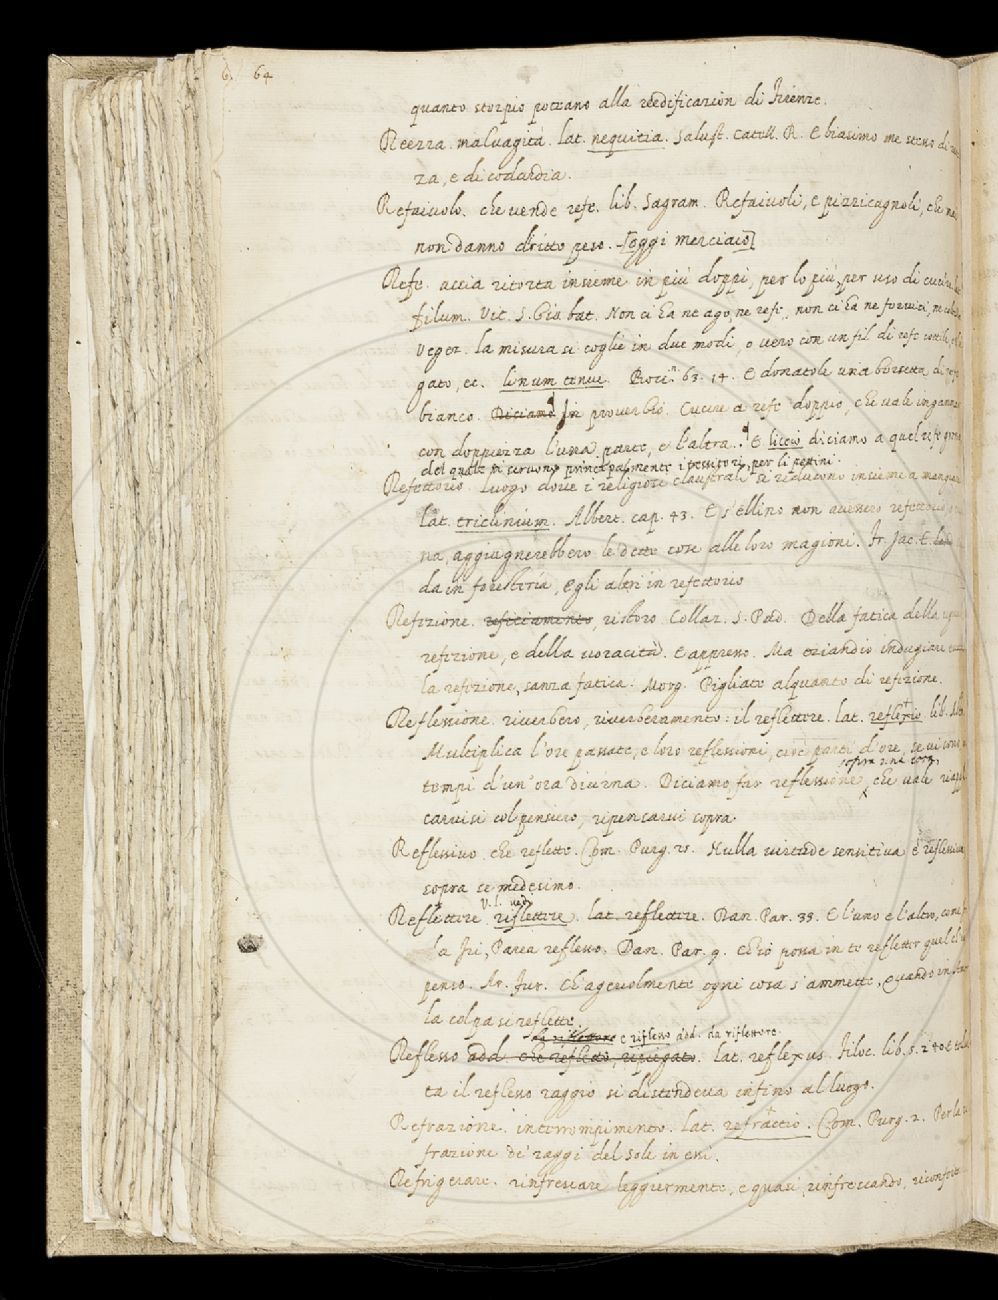 6. 64
quanto storpio poteano alla reedificazion di Firenze.
Reezza. malvagità. lat. nequitia. Salust. Catell. R. E biasimo me stesso di ree
za, e di codardia.
Refaiuolo. che vende refe. lib. Sagram. Refaiuoli, e pizzicagnoli, che
non danno diritto peso. [oggi merciaio]
Refe. accia ritorta insieme in più doppi, per lo più, per uso di cucire
filum. Vit. S. Gio bat. Non ci ha ne ago, ne refe, non ci ha ne forvici, ne
Veget. la misura si coglie in due modi, o vero con un fil di refe
gato, et. linum tenue. Bocc. n. 63. 14. E donatole una borsetta di refe
bianco. Diciamo In proverbio. Cucire a refe doppio, che vale ingannar
con doppiezza l'una parte, e l'altra. E liccio diciamo a quel refe
del quale si servono principalmente i tessitori, per li pettini.
Refettorio. luogo dove i religiosi claustrali si riducono insieme a mangiar
lat. triclinium. Albert. cap. 43. E s'ellino non avenero refettorio
na, aggiugnerebbero le dette cose alle loro magioni. Fr. Jac. T.
da in foresteria, E gli altri in refettorio
Refizione. reficiamento, ristoro. Collaz. S. Pad. Della fatica della
refizione, e della voracità. E appresso. Ma eziandio indugiare
la refizione, sanza fatica. Morg. Pigliate alquanto di refizione.
Reflessione. riverbero, riverberamento: il reflettere. lat. reflexio. lib.
Multiplica l'ore passate, e loro reflessioni, cioè parti d'ore, se vi sono
sopra una cosa,
tempi d'un'ora diurna. Diciamo, far reflessione che vale
carvisi col pensiero, ripensarvi sopra.
Reflessivo. che reflette. Com. Purg. 25. Nulla virtude sensitiva è reflessiva
sopra se medesimo.
V. l. ved.
Reflettere. riflettere. lat. reflettere. Dan. Par. 33. E l'uno e l'altro, come
la Iri, Parea reflesso. Dan. Par. 9. Ch'io possa in te reflettor quel ch'io
penso. Ar. Fur. Ch'agevolmente ogni cosa s'ammette, Quando in
la colpa si reflette.
da riflettere e riflesso add. da riflettere.
Reflesso add. che reflette, ripiegato. lat. reflexus. Filoc. lib. 5.
ta il reflesso raggio si distendeva infino al luogo.
Refrazione. interrompimento. lat. refractio. Com. Purg. 2. Per la
frazione de' raggi del sole in essi.
Refrigerare. rinfrescare leggiermente, e quasi rinfrescando,